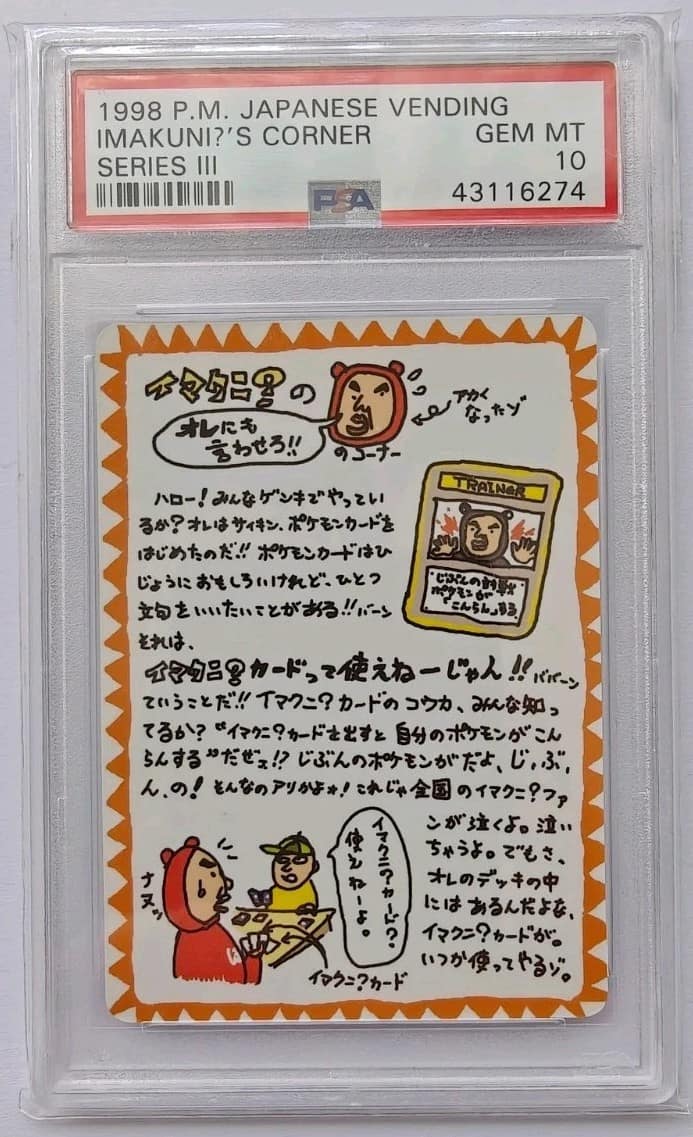 1998 P.M. JAPANESE VENDING
IMAKUNI?'S CORNER GEM MT
SERIES III 10
PSA 43116274
イマクニ?の
オレにも
言わせろ!!
のコーナー
アカく
なったゾ
ハロー!みんなゲンキでやってい
るか?オレはサイキン、ポケモンカードを
はじめたのだ!!ポケモンカードはひ
じょうにおもしろいけれど、ひとつ
文句をいいたいことがある!!バーン
それは、
TRAINER
じぶんの対戦
ポケモンが
「こんらん」する
イマクニ?カードって使えねーじゃん!!ババーン
ていうことだ!!イマクニ?カードのコウカ、みんな知っ
てるか?“イマクニ?カードを出すと自分のポケモンがこん
らんする”だぜェ!?じぶんのポケモンがだよ、じ、ぶ、
ん、の!そんなのアリかよォ!これじゃ全国のイマクニ?ファ
ンが泣くよ。泣い
ちゃうよ。でもさ、
オレのデッキの中
にはあるんだよな、
イマクニ?カードが。
いつか使ってやるゾ。
ナヌッ
イマクニ?カード?
使えねーよ。
イマクニ?カード